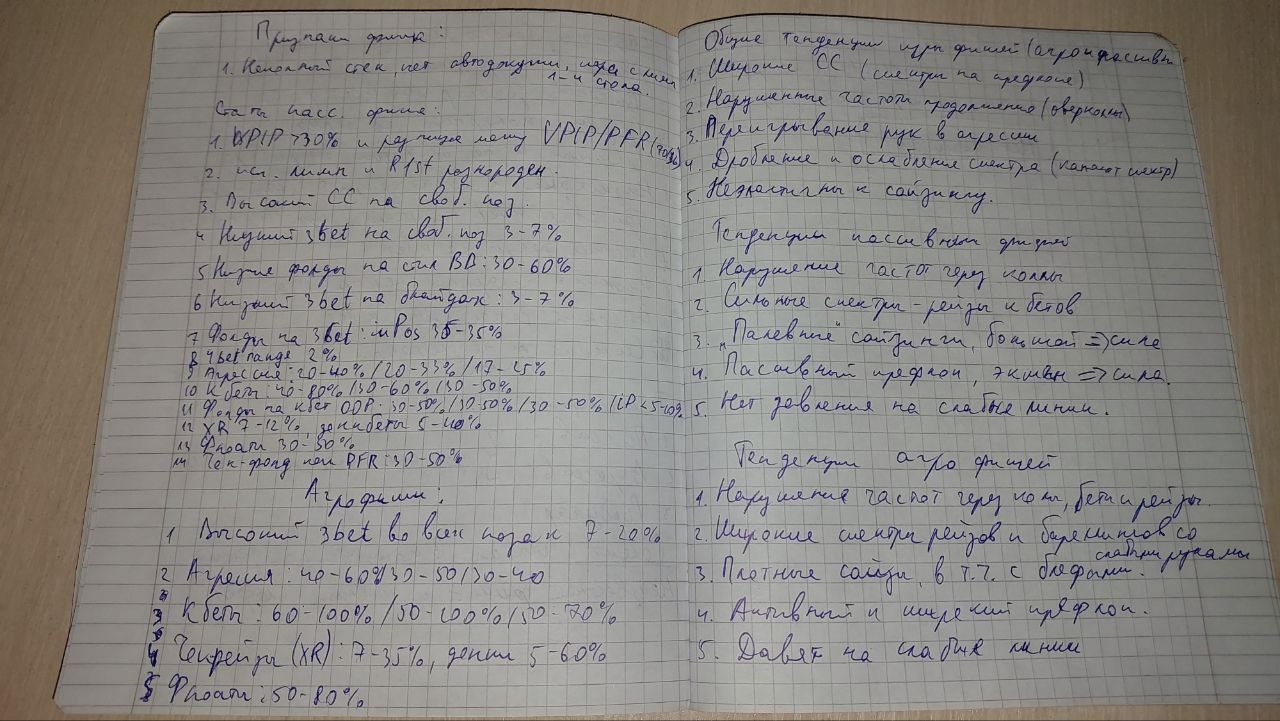 Признаки фиша:
1. Неполный стек, нет автодокупки, игра с лимп
1-4 стола.
Статы пасс. фиша:
1. VPIP >30% и разница между VPIP/PFR (
2. исп. лимп и R1st разнороден.
3. Высокий CC на своб. поз.
4 Низкий 3bet на своб. поз 3-7%
5 Низкие фолды на стил BB: 30-60%
6 Низкий 3bet на блайндах: 3-7%
7 Фолды на 3bet: inPos 35%
8 4bet рандё 2%
9 Агрессия: 20-40% / 20-33% / 17-25%
10 К беты: 40-80% / 30-60% / 30-50%
11 Фолды на кбет OOP: 30-50% / 30-50% / 30-50% / IP < 5-10%
12 XR 7-12%, донкбеты 5-40%
13 Флоаты 30-50%
14 Чек-фолд как PFR: 30-50%
Агрофиши:
1 Высокий 3bet во всех позах 7-20%
2 Агрессия: 40-60%/30-50/30-40
3 К беты: 60-100% / 50-100% / 50-70%
4 Чекрейзы (XR): 7-35%, донки 5-60%
5 Флоаты: 50-80%
Общие тенденции игры фишей (агро и пассивн.
1. Широкие CC (спектры на префлопе)
2. Нарушенные частоты продолжения (оверколлы)
3. Переигрывание рук в агрессии
4. Дробление и ослабление спектра (капают спектр)
5. Неэластичны к сайзингу.
Тенденции пассивных фишей
1. Нарушения частот через коллы
2. Сильные спектры - рейзы и бетов
3. „Палевные" сайзинги, большой => сила
4. Пассивный префлоп, экшн => сила.
5. Нет давления на слабые линии.
Тенденции агро фишей
1. Нарушения частот через колы, беты и рейзы.
2. Широкие спектры рейзов и баррелингов со
слабыми руками
3. Плотные сайзы, в т.ч. с блефами.
4. Активный и широкий префлоп.
5. Давят на слабые линии